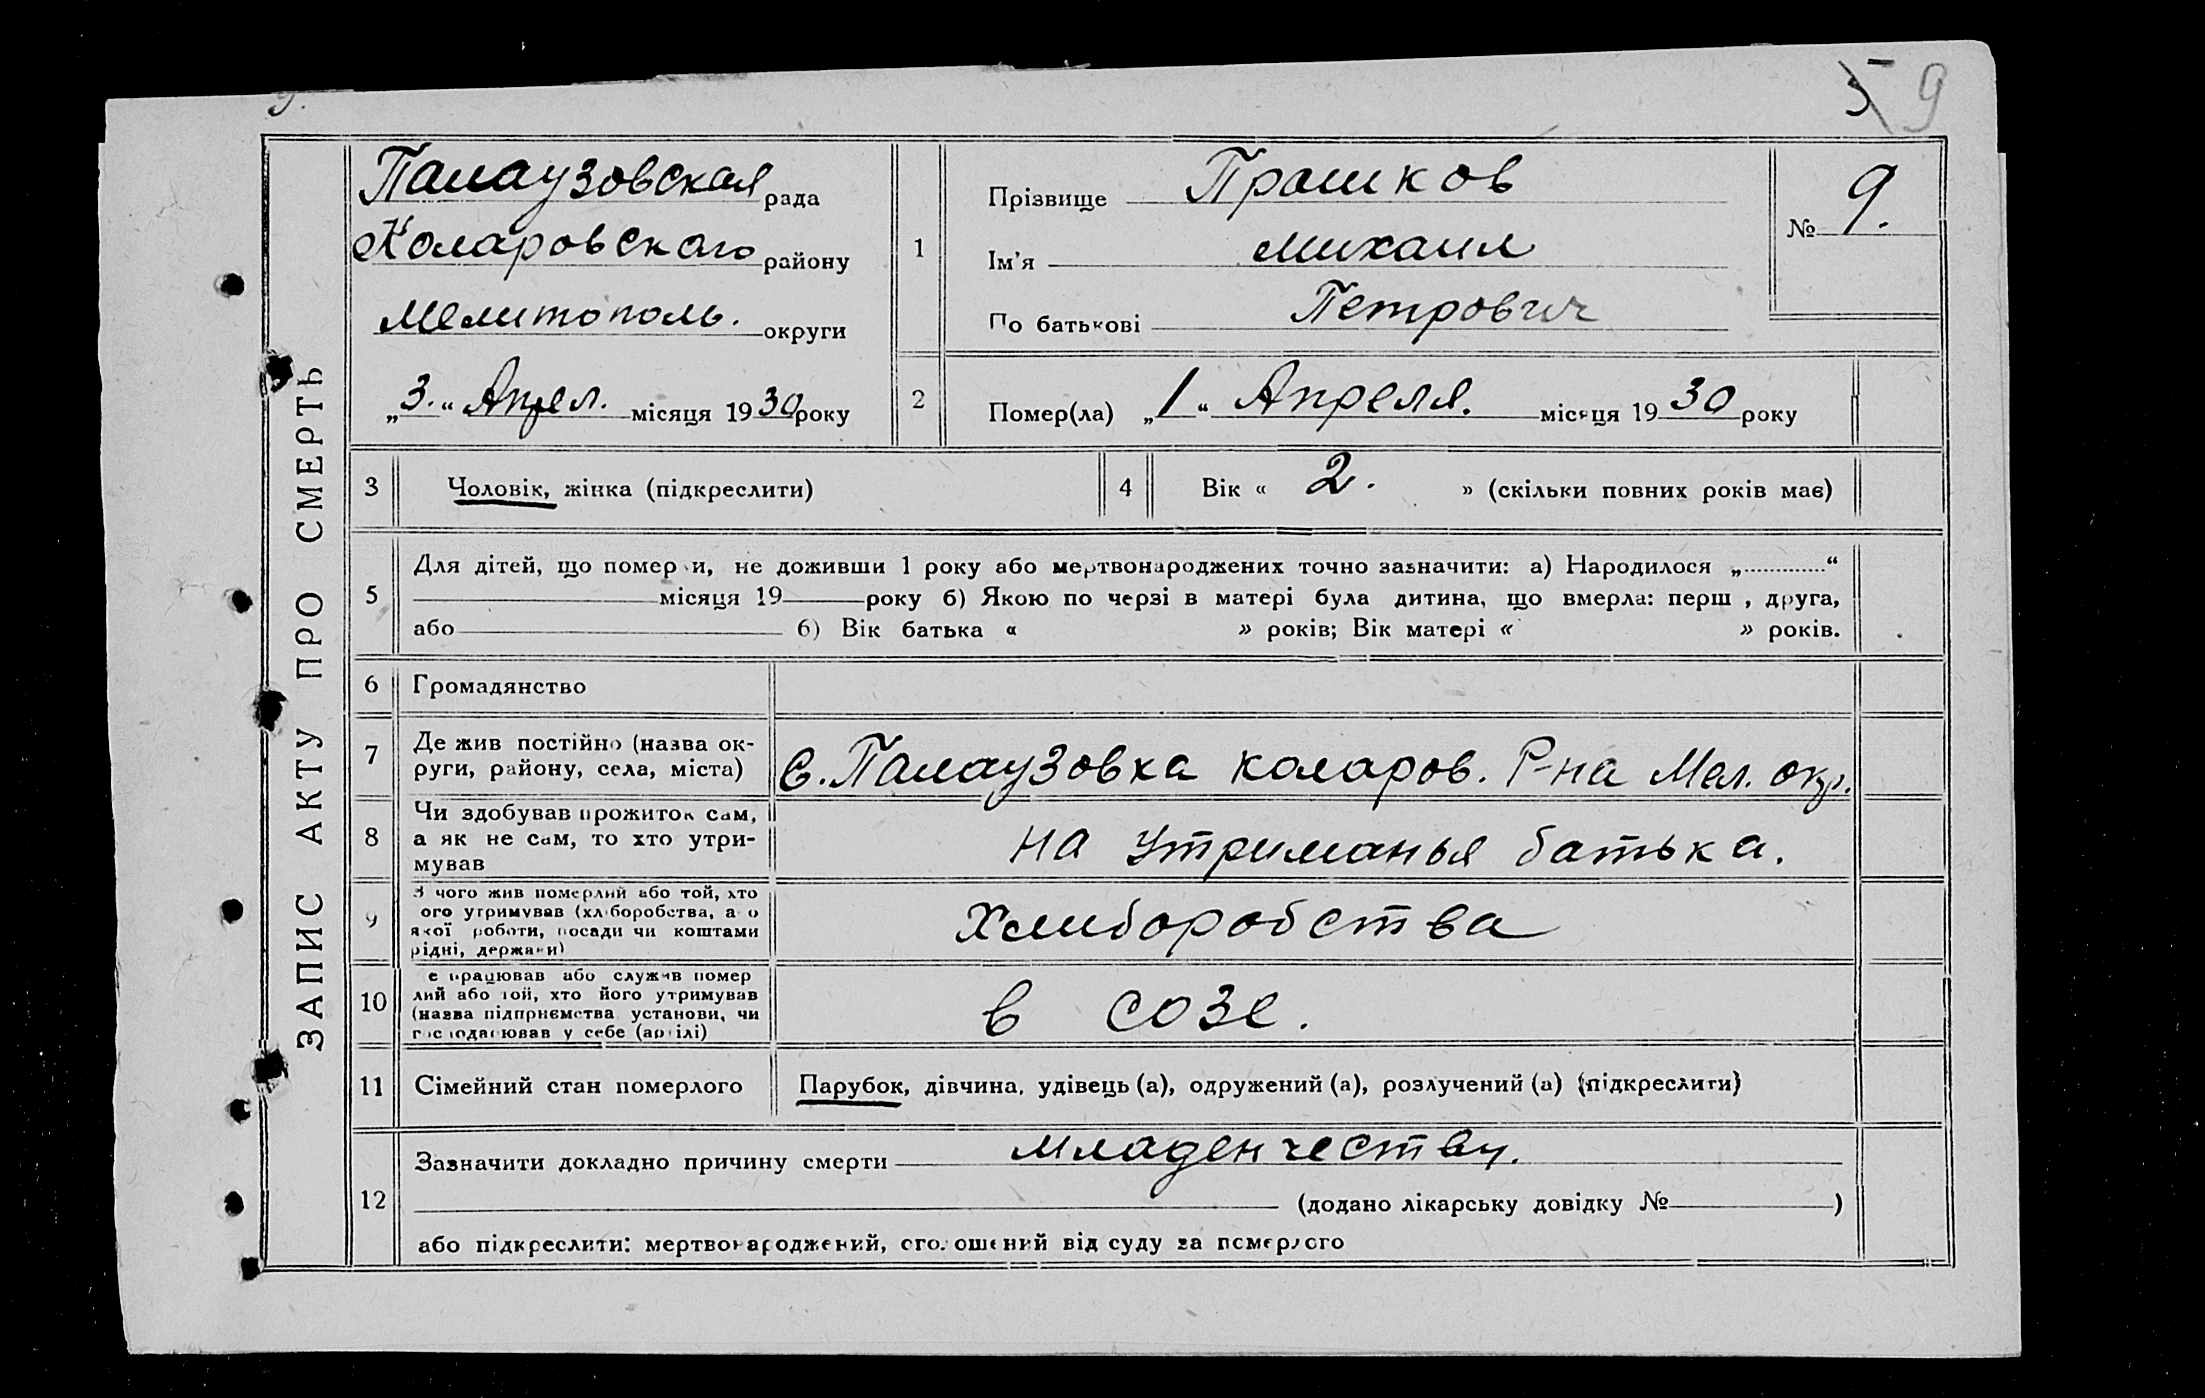 5 9
Палаузовская рада
Коларовского району
Мелитополь. округи
„3.“ Апрел. місяця 1930 року
1
Прізвище Прошков
Ім'я Михаил
По батькові Петрович
№ 9.
2
Помер(ла) „1“ Апреля. місяця 1930 року
ЗАПИС АКТУ ПРО СМЕРТЬ
3 Чоловік, жінка (підкреслити)
4 Вік « 2. » (скільки повних років має)
5
Для дітей, що померли, не доживши 1 року або мертвонароджених точно зазначити: а) Народилося „ “
місяця 19 року б) Якою по черзі в матері була дитина, що вмерла: перш , друга,
або 6) Вік батька « » років; Вік матері « » років.
6 Громадянство
7 Де жив постійно (назва ок-
руги, району, села, міста)
С. Палаузовка коларов. Р-на Мел. окр.
8 Чи здобував прожиток сам,
а як не сам, то хто утри-
мував
на утриманья батька.
9 З чого жив померлий або той, хто
ого утримував (хліборобства, а о
якої роботи, посади чи коштами
рідні, держави)
Хлиборобства
10 е працював або служив помер
лий або той, хто його утримував
(назва підприємства установи, чи
господарював у себе (артілі)
в созе.
11 Сімейний стан померлого Парубок, дівчина, удівець (а), одружений (а), розлучений (а) (підкреслити)
12 Зазначити докладно причину смерти младенчеству.
(додано лікарську довідку № )
або підкреслити: мертвонароджений, оголошений від суду за померлого